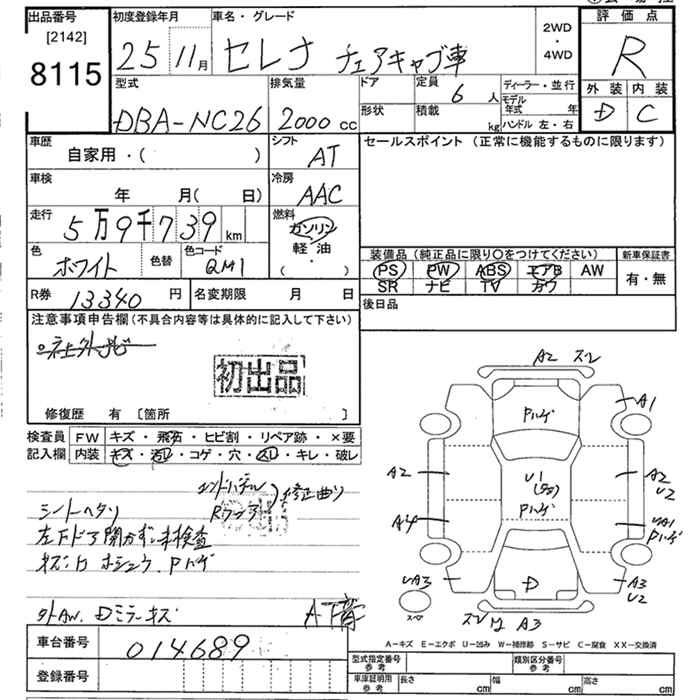 出品番号
[2142]
8115
初度登録年月
25 11月
車名・グレード
セレナ チェアキャブ車
2WD
・
4WD
評価点
R
外装 内装
D C
型式
DBA-NC26
排気量
2000 cc
ドア
形状
定員
6 人
積載
kg
ディーラー・並行
モデル年式 年
ハンドル 左・右
車歴
自家用・( )
シフト
AT
セールスポイント (正常に機能するものに限ります)
車検
年 月(日)
冷房
AAC
走行
5万9千739km
燃料
ガソリン
軽・油
( ・ )
色
ホワイト
色替
色コード
QM1
装備品 (純正品に限り○をつけてください)
PS PW ABS エアB AW
SR ナビ TV カワ
新車保証書
有・無
R券 13340円
名変期限 月 日
後日品
注意事項申告欄(不具合内容等は具体的に記入して下さい)
初出品
修復歴 有 [箇所 ]
検査員
記入欄
FW キズ・飛石・ヒビ割・リペア跡・×要
内装 キズ・汚レ・コゲ・穴・スレ・キレ・破レ
修正曲り
シートヘタリ
左下ドア開かず、未検査
外AW. Dミラーキズ
A下音
A2 スレ
Pハゲ
A1
A2
U1
Pハゲ
A2
U2
A4
UA1
Pハゲ
UA3
D
A3
U2
スペア
A3
A-キズ E-エクボ U-凹み W-補修跡 S-サビ C-腐食 XX-交換済
車台番号
014689
登録番号
型式指定番号
参考
類別区分番号
参考
車庫証明用
参考
長さ cm
幅 cm
高さ cm